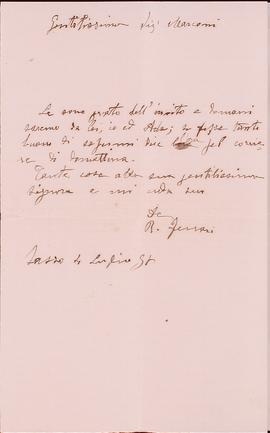 Gentilissimo Sig. Marconi
Le sono grato dell'invito e domani
saremo da lei, io ed Ada; se fosse tanto
buono di sapermi dire
di domattina.
Tante cose alla sua gentilissima
signora e mi creda suo
R. Ferrari
Sasso 4 Luglio